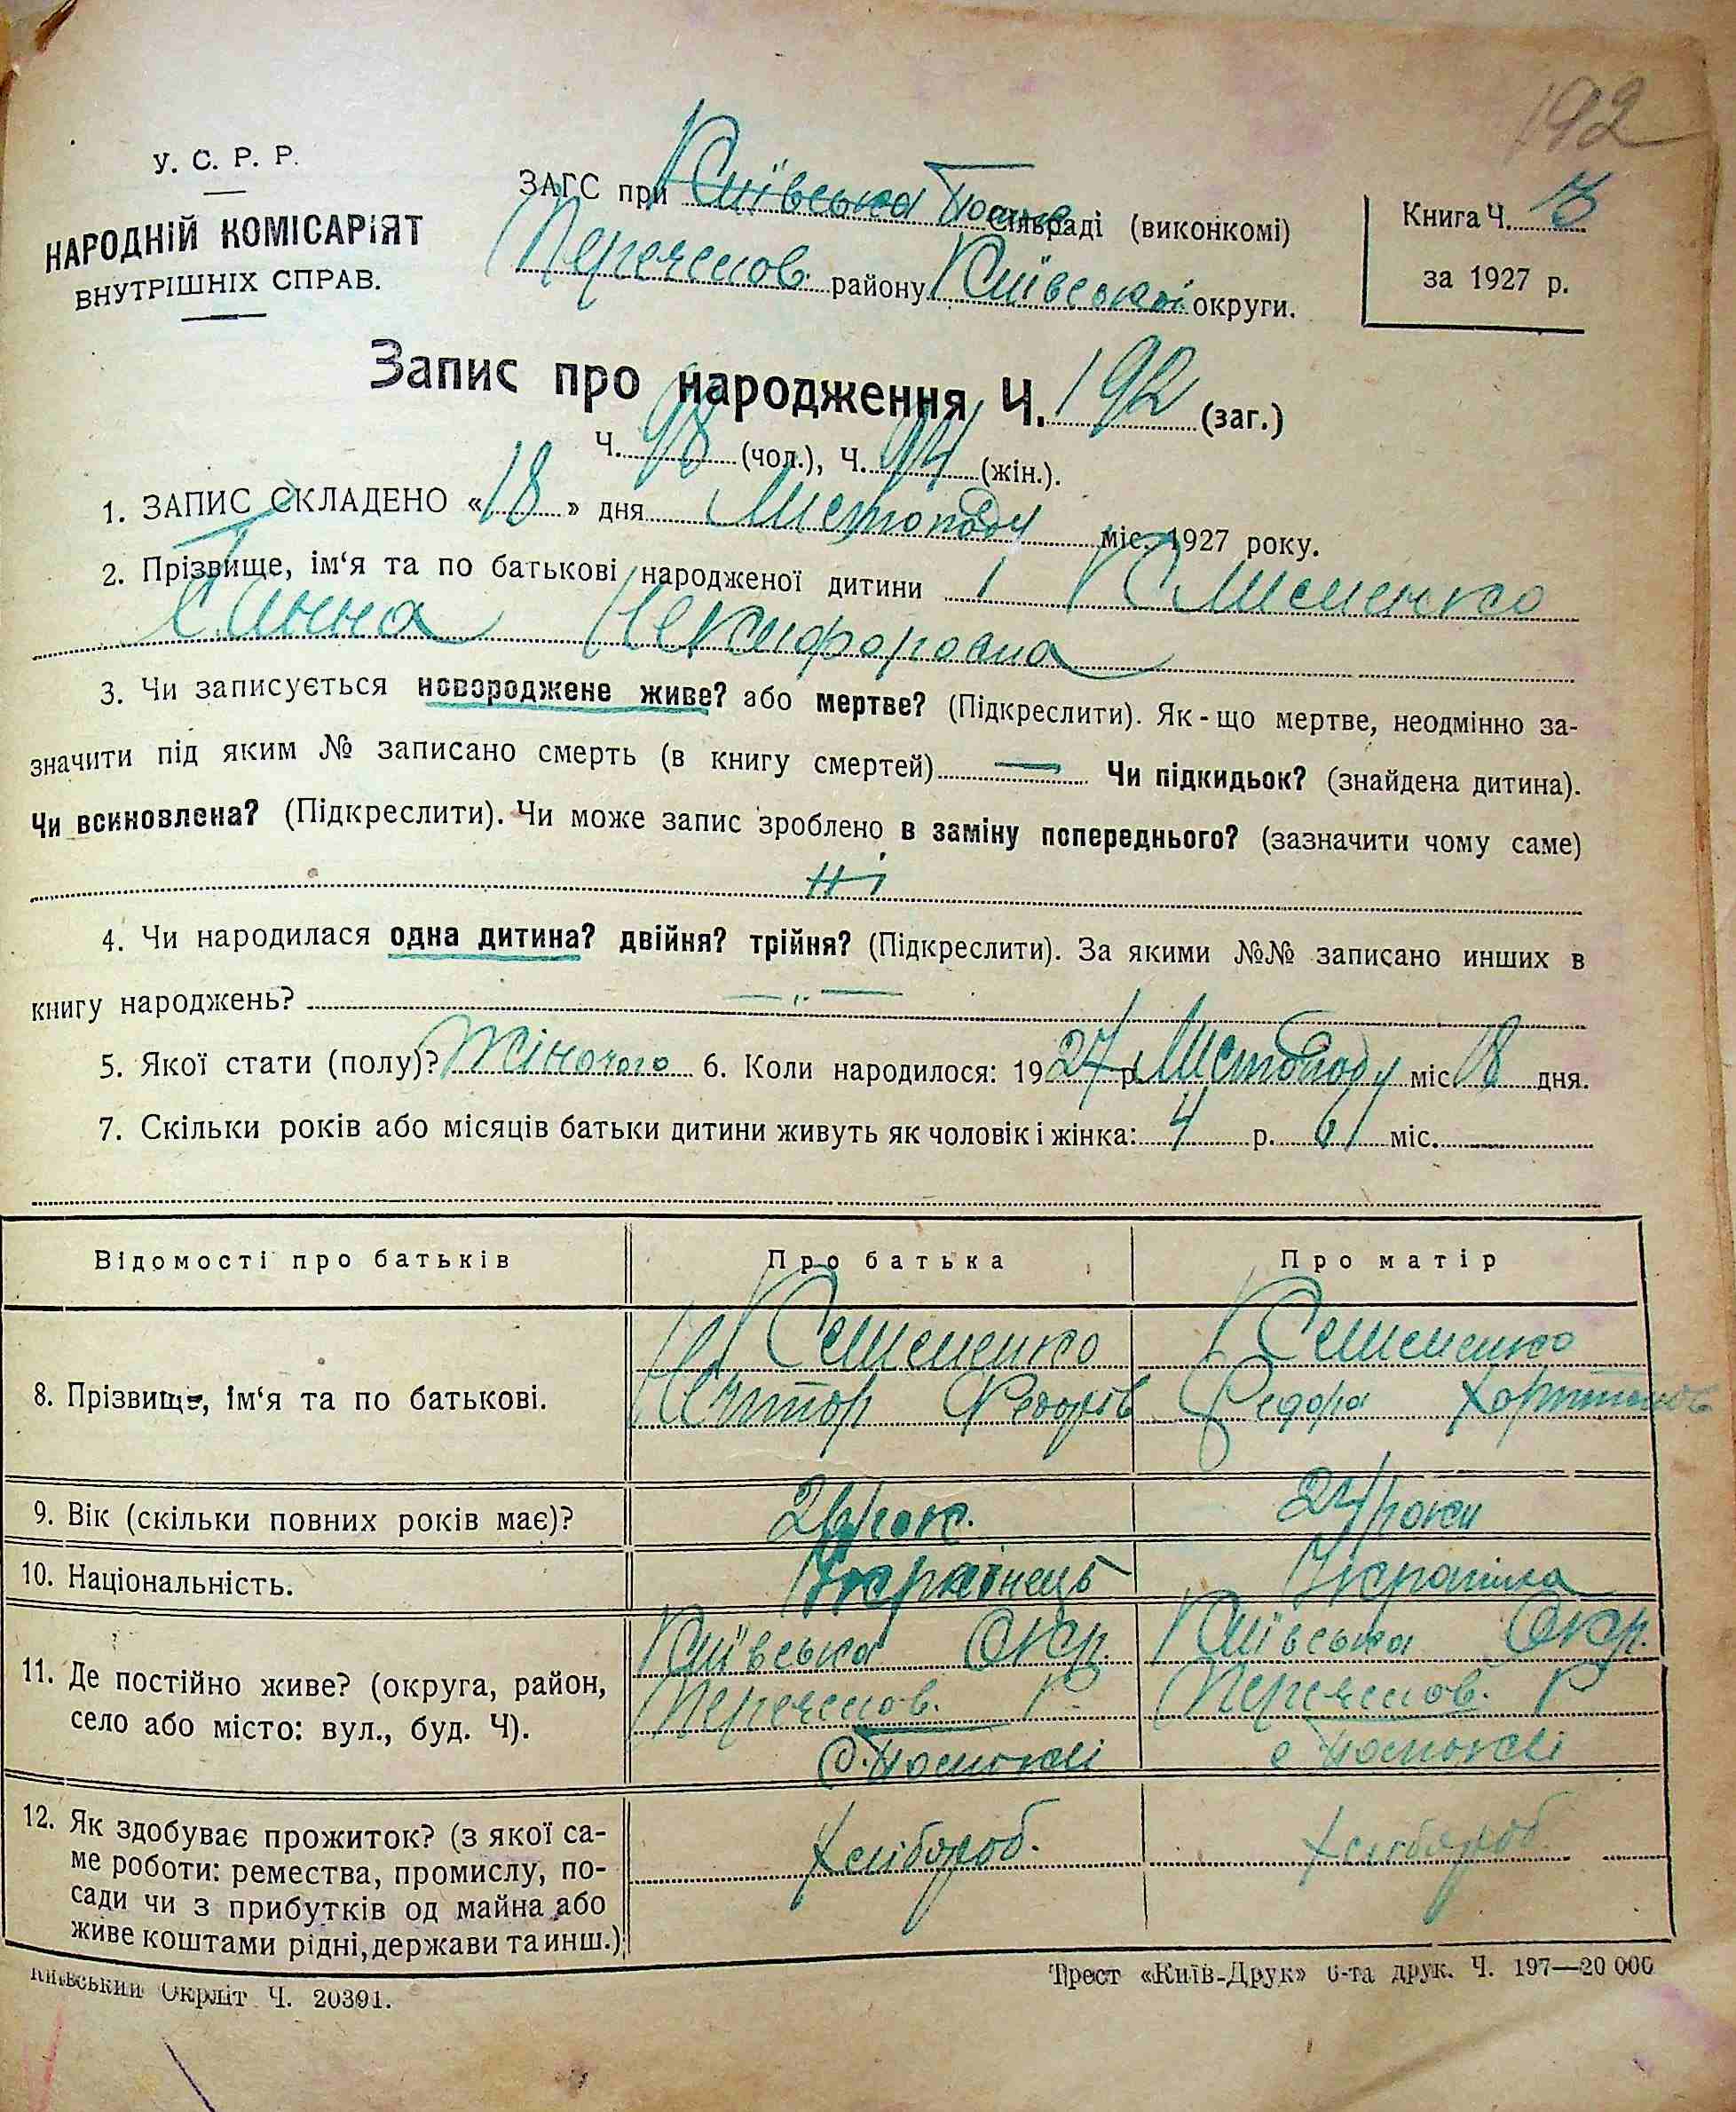 192
У. С. Р. Р.
НАРОДНІЙ КОМІСАРІЯТ
ВНУТРІШНІХ СПРАВ.
ЗАГС при Київська сільраді (виконкомі)
району Київської округи.
Книга Ч. 3
за 1927 р.
Запис про народження Ч. 192 (заг.)
Ч. 98 (чол.), Ч. 94 (жін.).
1. ЗАПИС СКЛАДЕНО «18» дня Листопаду міс. 1927 року.
2. Прізвище, ім‘я та по батькові народженої дитини Клименко
Ганна
3. Чи записується новороджене живе? або мертве? (Підкреслити). Як-що мертве, неодмінно за-
значити під яким № записано смерть (в книгу смертей) — Чи підкидьок? (знайдена дитина).
Чи всиновлена? (Підкреслити). Чи може запис зроблено в заміну попереднього? (зазначити чому саме)
Ні
4. Чи народилася одна дитина? двійня? трійня? (Підкреслити). За якими №№ записано инших в
книгу народжень? — „ —
5. Якої стати (полу)? Жіночого 6. Коли народилося: 1927 р. Листопаду міс 8 дня.
7. Скільки років або місяців батьки дитини живуть як чоловік і жінка: 4 р. 6 міс.
Відомості про батьків Про батька Про матір
8. Прізвище, ім‘я та по батькові.
Клименко Клименко
Федора
9. Вік (скільки повних років має)? 26 рок. 24 роки
10. Національність. Українець Українка
11. Де постійно живе? (округа, район,
село або місто: вул., буд. Ч).
Київська Окр. Київська Окр.
12. Як здобуває прожиток? (з якої са-
ме роботи: ремества, промислу, по-
сади чи з прибутків од майна або
живе коштами рідні, держави та инш.)
Хлібороб. Хлібороб.
Київський Окрліт Ч. 20391.
Трест «Київ-Друк» 6-та друк. Ч. 197—20 000